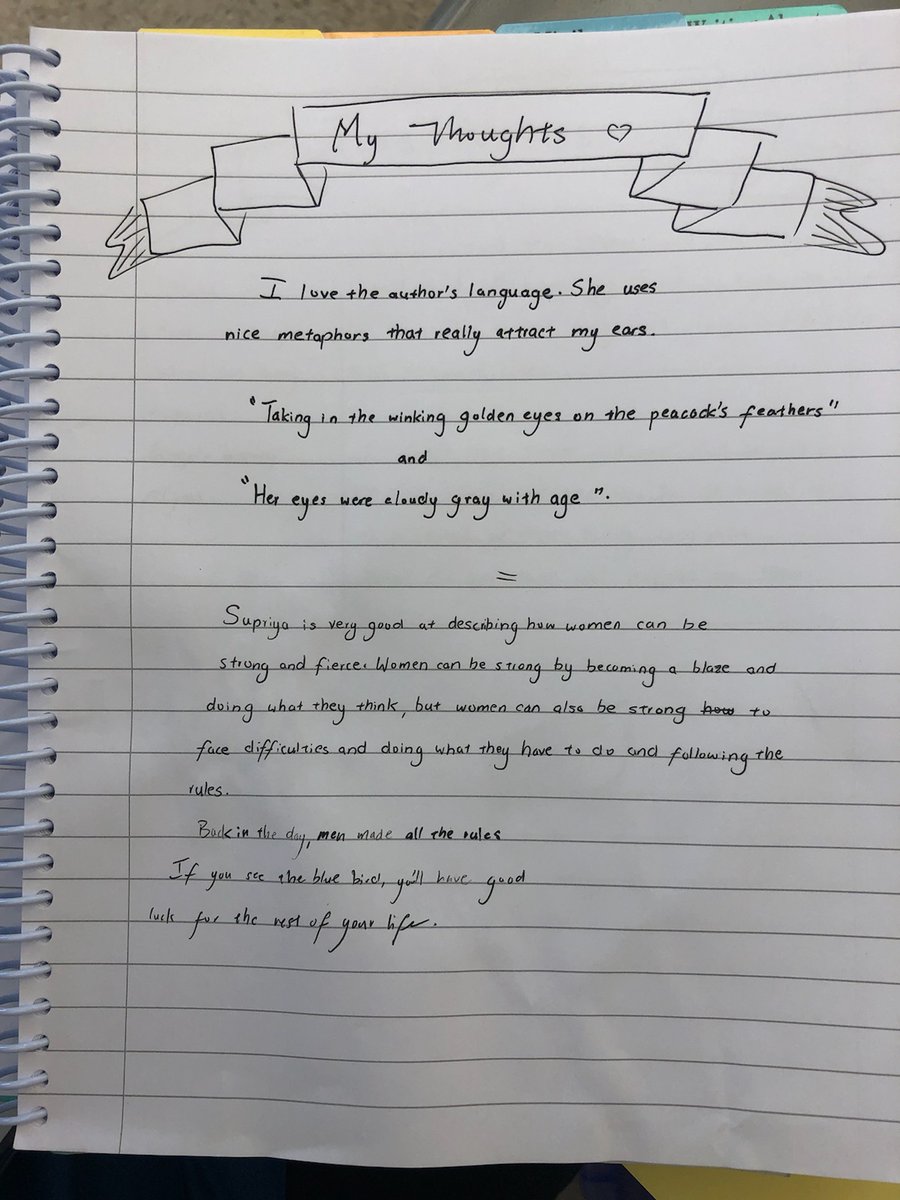 My Thoughts ♡
I love the author's language. She uses
nice metaphors that really attract my ears.
"Taking in the winking golden eyes on the peacock's feathers"
and
"Her eyes were cloudy gray with age".
=
Supriya is very good at describing how women can be
strong and fierce. Women can be strong by becoming a blaze and
doing what they think, but women can also be strong how to
face difficulties and doing what they have to do and following the
rules.
Back in the day, men made all the rules
If you see the blue bird, you'll have good
luck for the rest of your life.